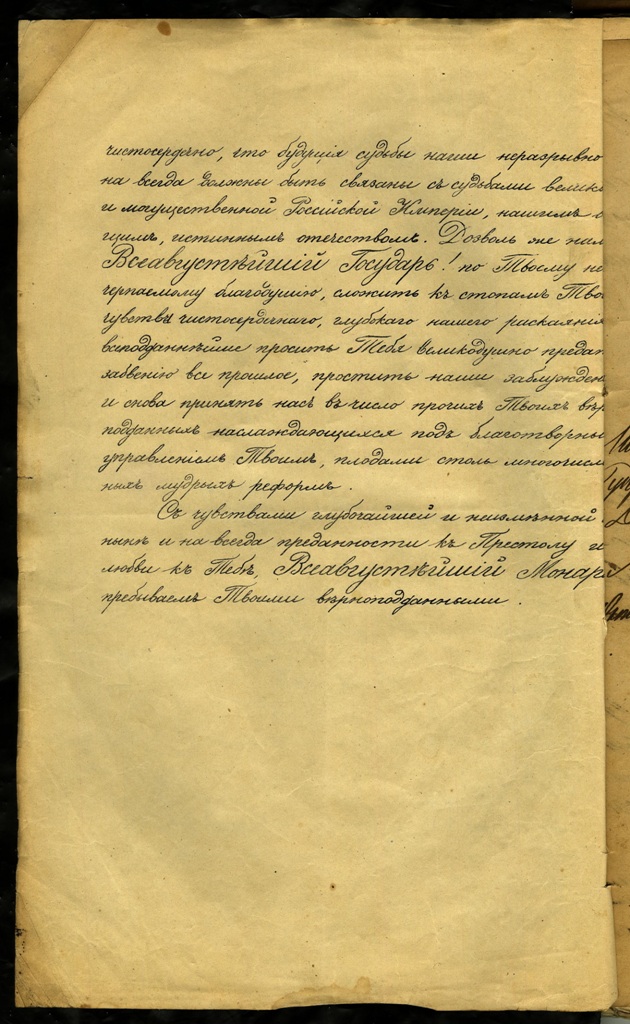 чистосердечно, что будущія судьбы наши неразрывно
на всегда должны быть связаны съ судьбами велик
и могущественной Россійской Имперіи, нашимъ о
щимъ, истиннымъ отечествомъ. Дозволь же нам
Всеавгустѣйшій Государь! по Твоему не
черпаемому благодушію, сложить къ стопамъ Тво
чувства чистосердечнаго, глубокаго нашего раскаянія
всеподданнѣйше просить Тебя Великодушно предат
забвенію все прошлое, простить наши заблужден
и снова принять насъ въ число прочихъ Твоихъ вѣр
подданныхъ наслаждающихся подъ благотворны
управленіемъ Твоимъ, плодами столь многочисл
ныхъ мудрыхъ реформъ.
Съ чувствами глубочайшей и неизмѣнной
нынѣ и на всегда преданности къ Престолу и
любви къ Тебѣ, Всеавгустѣйшій Монарх
пребываемъ Твоими вѣрноподданными.